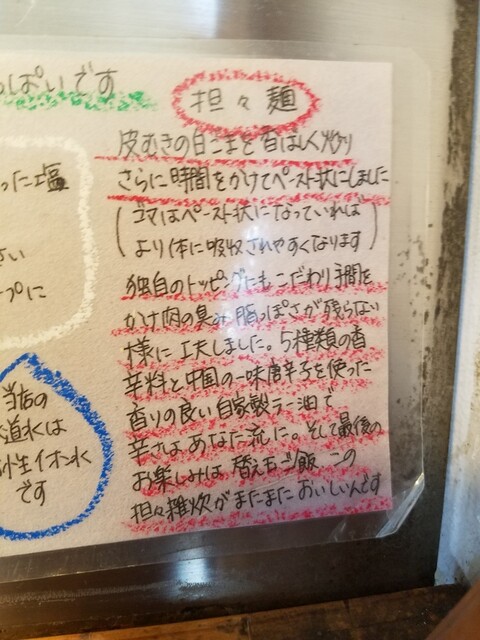 っぱいです
担々麺
皮むきの白ごまを香ばしく炒り
さらに時間をかけてペースト状にしました
(ゴマはペースト状になっていれば
より体に吸収されやすくなります)
独自のトッピングにもこだわり手間を
かけ肉の臭み脂っぽさが残らない
様に工夫しました。5種類の香
辛料と中国の一味唐辛子を使った
香りの良い自家製ラー油で
辛さはあなた流に。そして最後の
お楽しみは替えもご飯この
担々雑炊がまたまたおいしいんです
った塩
さい
ープに
当店の
水道水は
イオン水
です